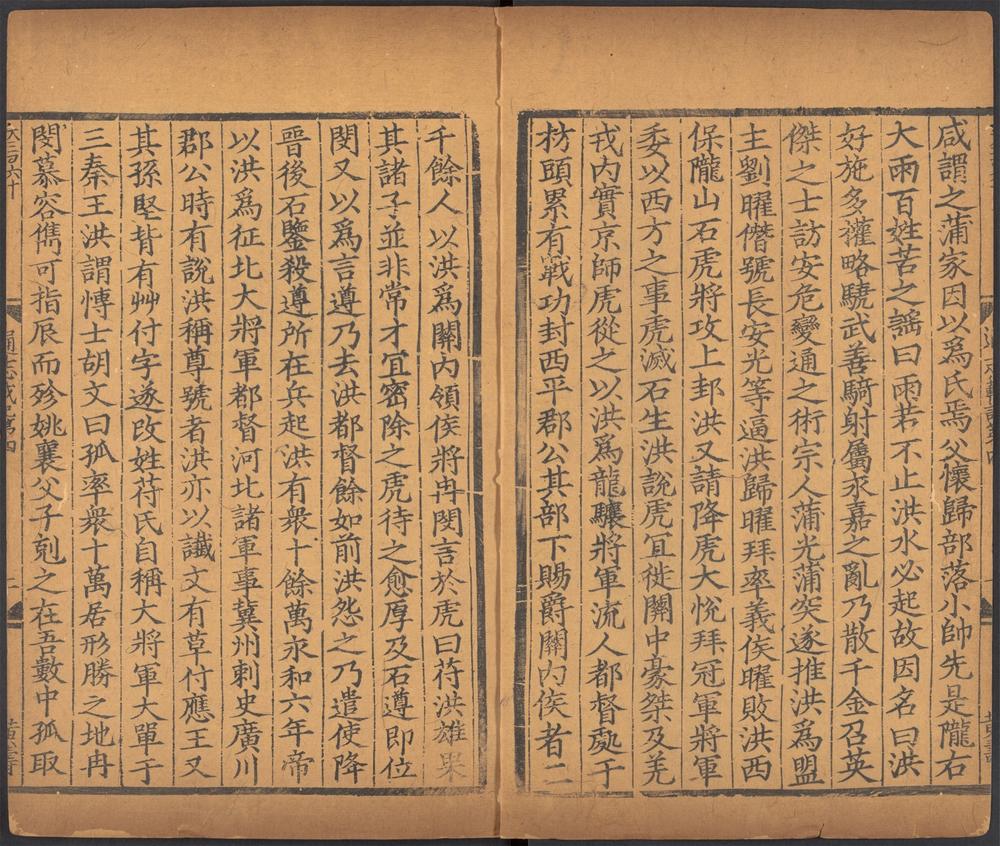 咸謂之蒲家因以爲氏焉父懷歸部落小帥先是隴右
大雨百姓苦之謡曰雨若不止洪水必起故因名曰洪
好施多權略驍武善騎射屬永嘉之亂乃散千金召英
傑之士訪安危變通之術宗人蒲光蒲突遂推洪爲盟
主劉曜僭號長安光等逼洪歸曜拜率義侯曜敗洪西
保隴山石虎將攻上邽洪又請降虎大恱拜冠軍將軍
委以西方之事虎滅石生洪說虎宜徙關中豪桀及羌
戎内實京師虎從之以洪爲龍驤將軍流人都督處于
枋頭累有戰功封西平郡公其部下賜爵關内侯者二
千餘人以洪爲關内領侯將冉閔言於虎曰苻洪雄果
其諸子並非常才宜密除之虎待之愈厚及石遵即位
閔又以爲言遵乃去洪都督餘如前洪怨之乃遣使降
晉後石鑒殺遵所在兵起洪有衆十餘萬永和六年帝
以洪爲征北大將軍都督河北諸軍事冀州刺史廣川
郡公時有說洪稱尊號者洪亦以讖文有草付應王又
其孫堅背有艸付字遂改姓苻氏自稱大將軍大單于
三秦王洪謂愽士胡文曰孤率衆十萬居形勝之地冉
閔慕容儁可指辰而殄姚襄父子剋之在吾數中孤取